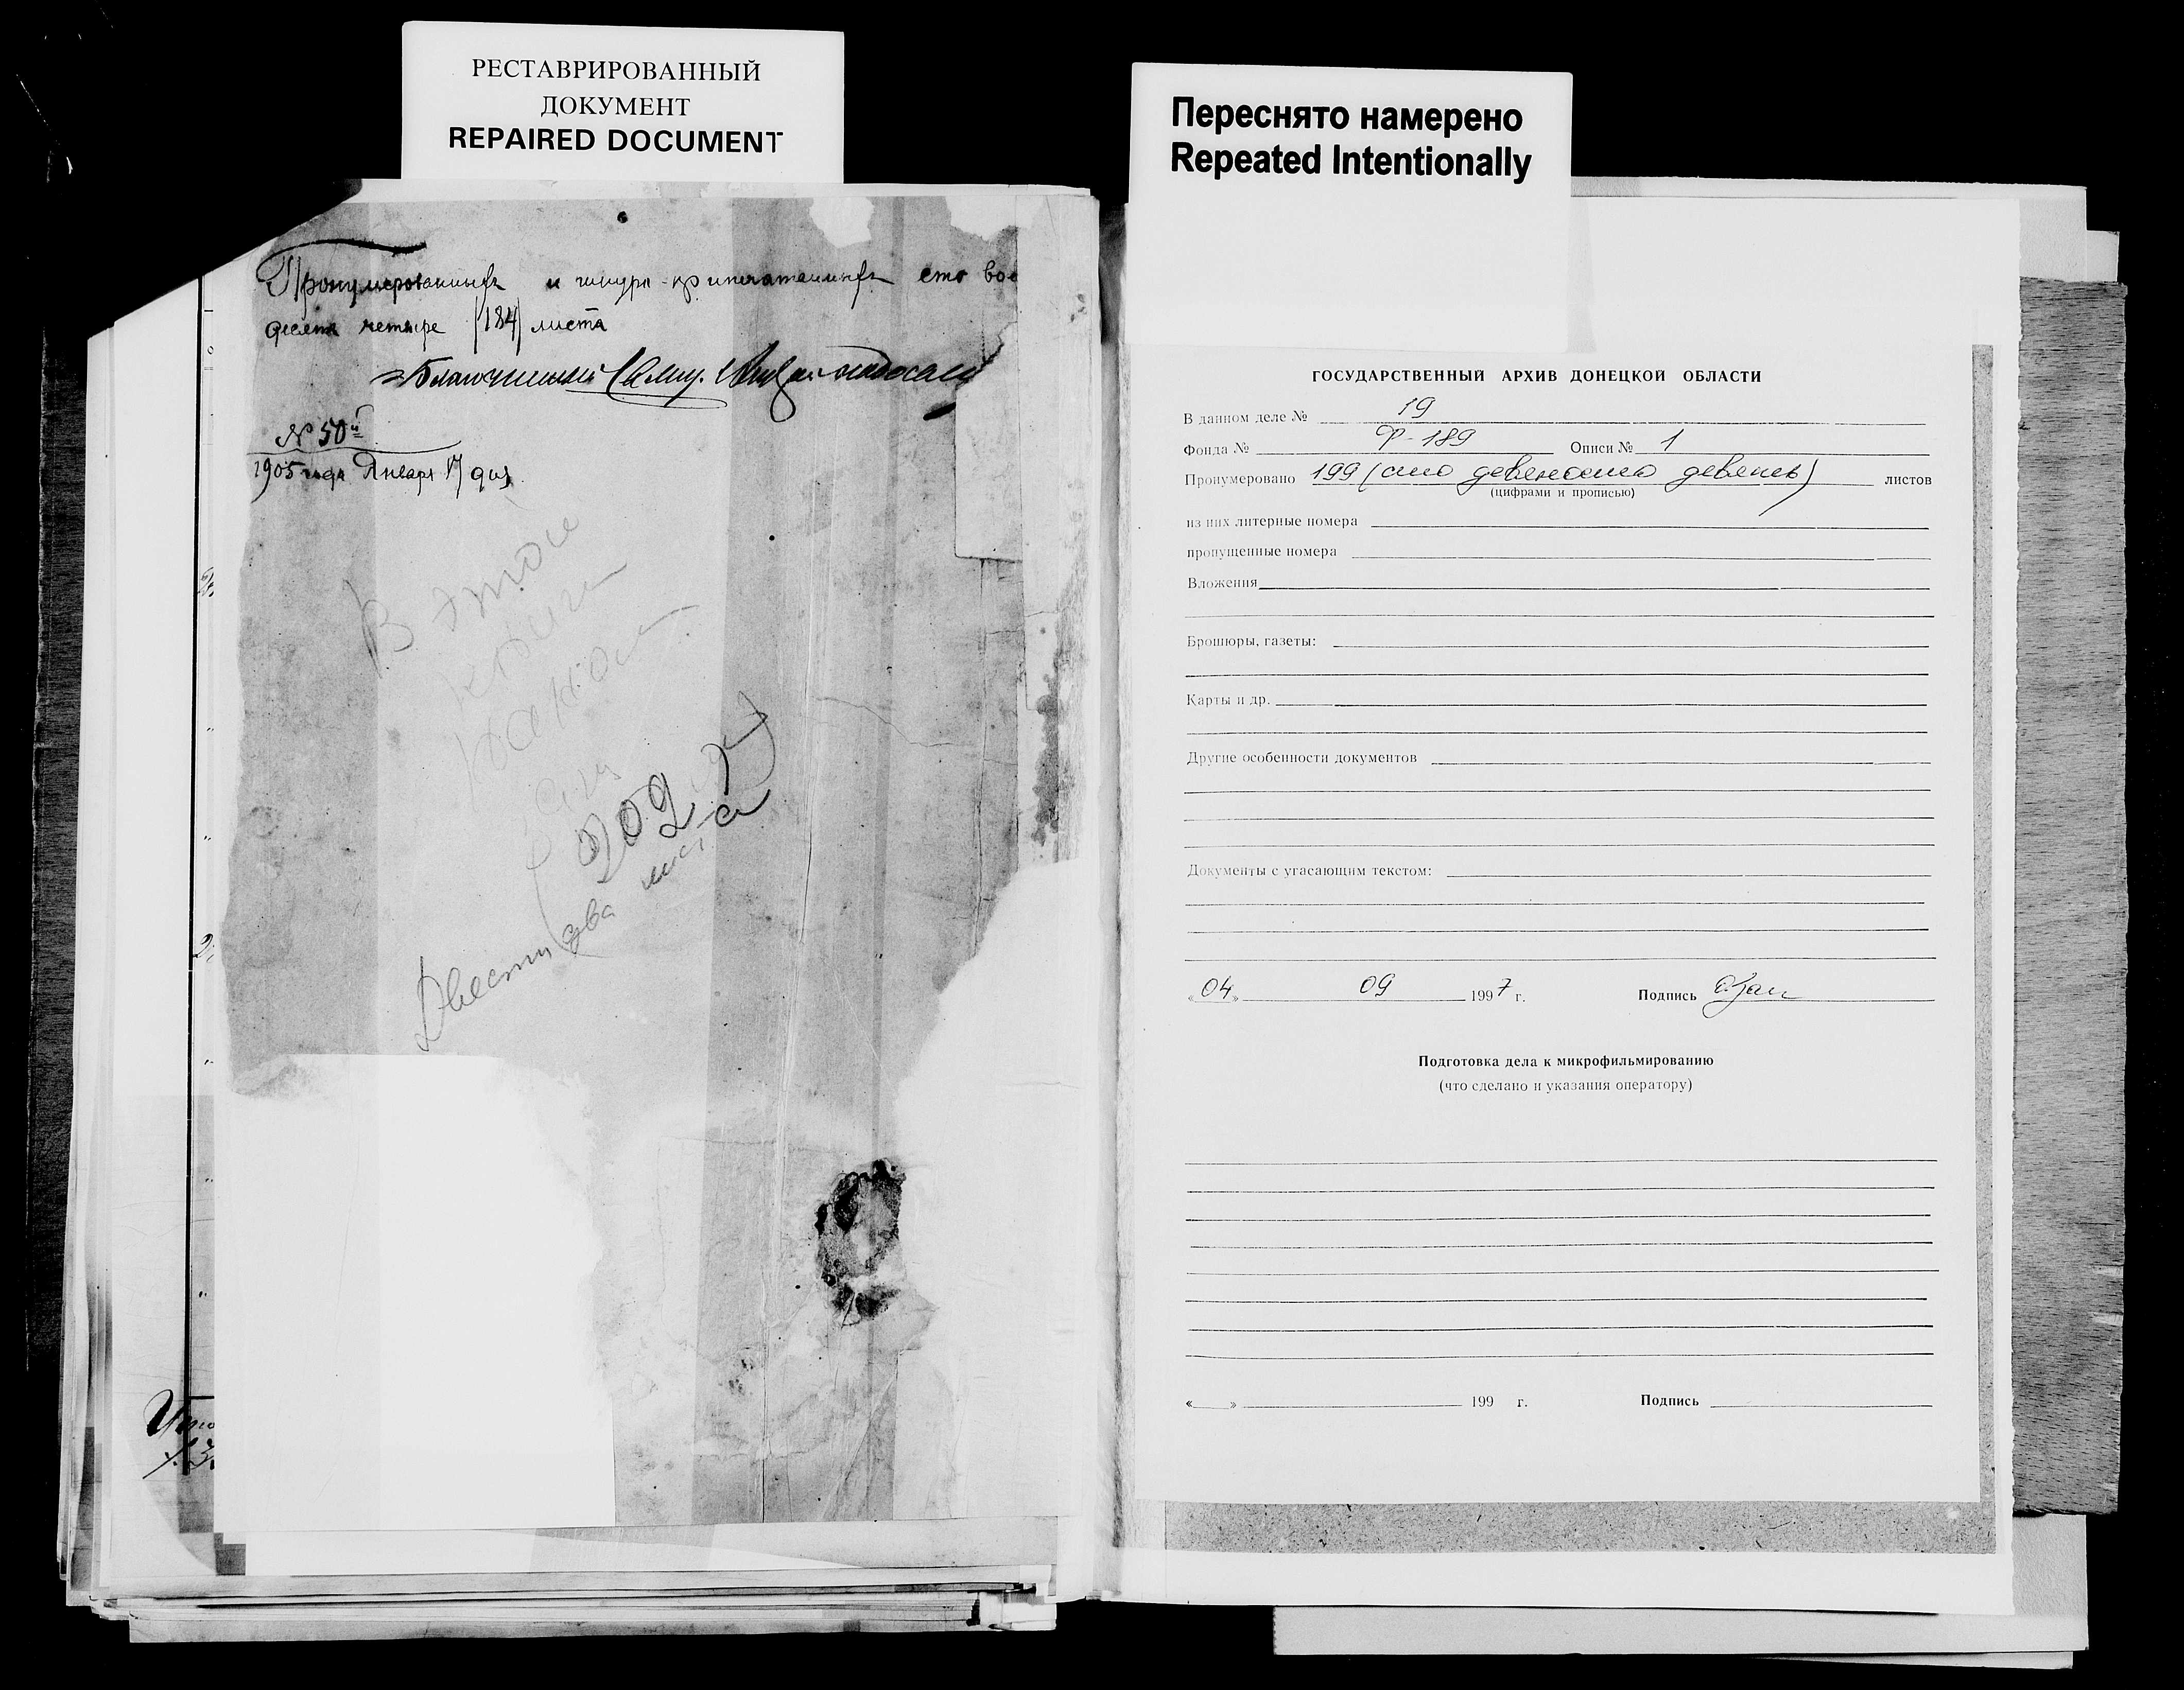 РЕСТАВРИРОВАННЫЙ
ДОКУМЕНТ
REPAIRED DOCUMENT
Пронумерованныхъ и шнуро-припечатанныхъ сто во
десят четыре (184) листа
Благочинный Свящ.
№ 50й
1905 года Января 17 дня
В этой
книге
202
Двести два листа
Переснято намерено
Repeated Intentionally
ГОСУДАРСТВЕННЫЙ АРХИВ ДОНЕЦКОЙ ОБЛАСТИ
В данном деле № 19
Фонда № Р-189 Описи № 1
Пронумеровано 199 (сто девяносто девять) листов
(цифрами и прописью)
из них литерные номера
пропущенные номера
Вложения
Брошюры, газеты:
Карты и др.
Другие особенности документов
Документы с угасающим текстом:
«04» 09 1997 г. Подпись
Подготовка дела к микрофильмированию
(что сделано и указания оператору)
« » 199 г. Подпись